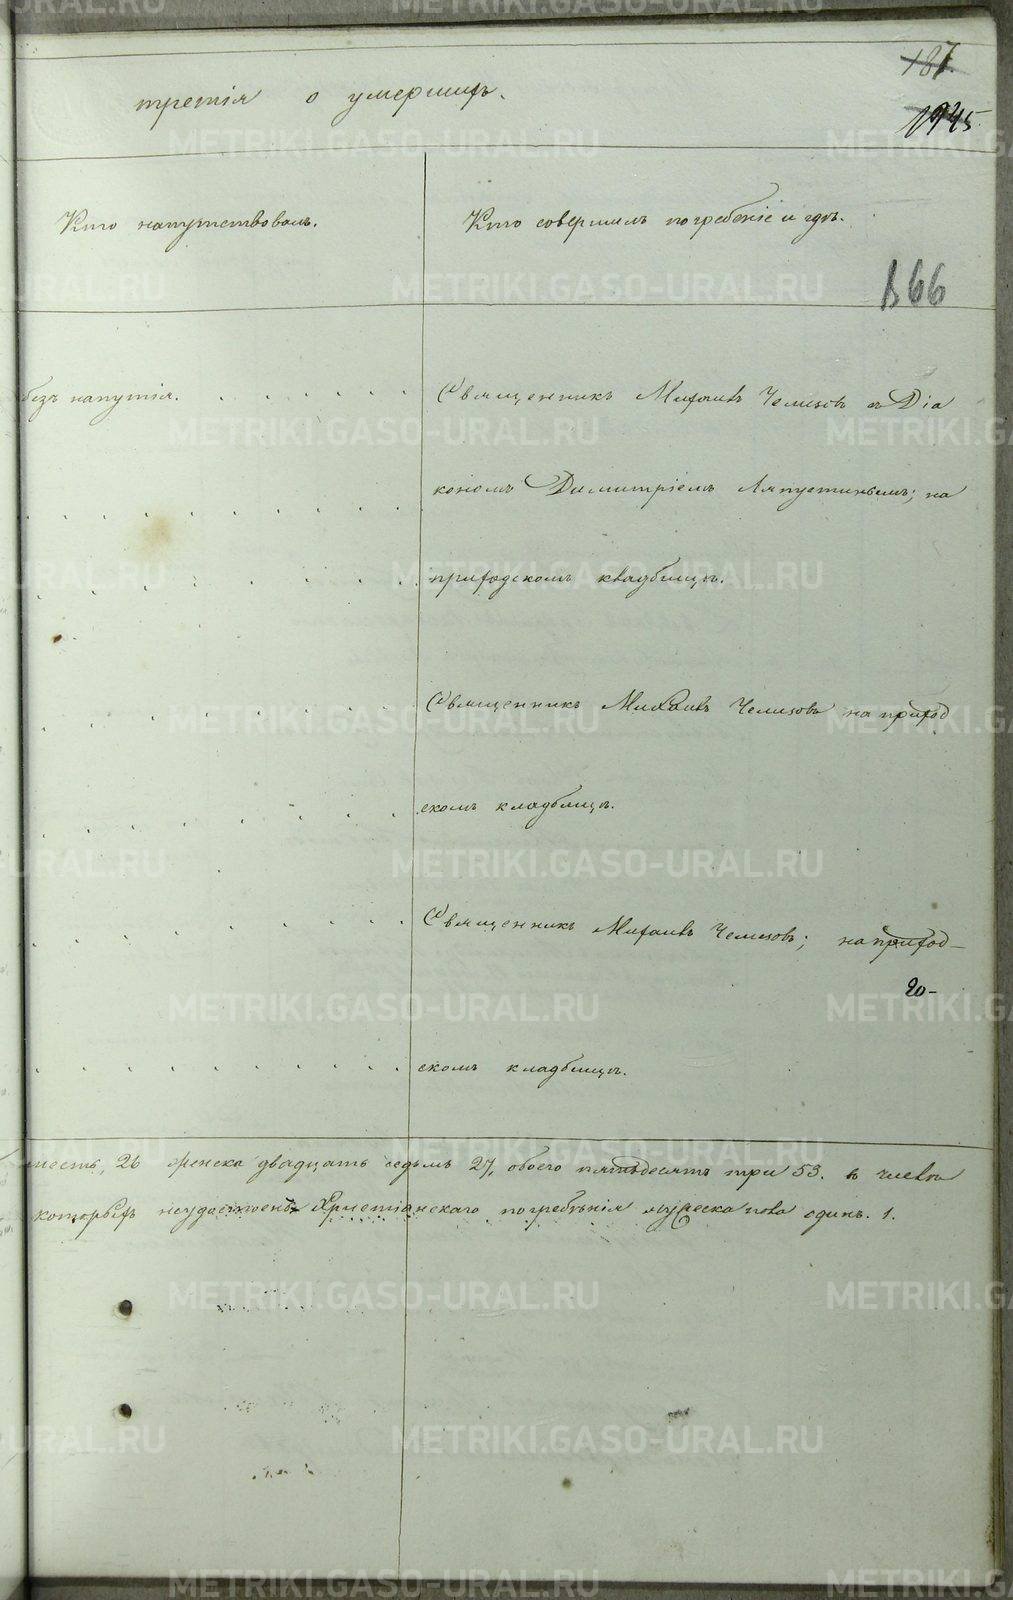 187.
1945
третія о умершихъ.
Кто напутствовалъ.
Кто совершилъ погребеніе и гдѣ.
866
безъ напутія.
Священникъ Михаилъ Чемизовъ съ Діа
кономъ Димитріемъ Ляпустинымъ; на
приходскомъ кладбищѣ.
Священникъ Михаилъ Чемизовъ на приход
скомъ кладбищѣ.
Священникъ Михаилъ Чемизовъ; на приход-
го-
скомъ кладбищѣ.
шесть, 26 женска двадцать седьмь 27, обоего пятьдесятъ три 53. въ числѣ
которыхъ неудостоенъ Христіанскаго погребѣнія мужеска пола одинъ. 1.
METRIKI.GASO-URAL.RU